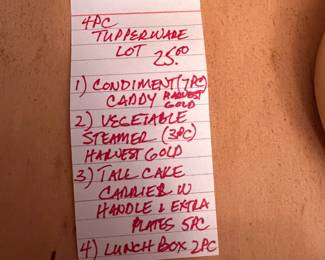 4PC
TUPPERWARE
LOT 25.00
1) CONDIMENT (7PC)
CADDY HARVEST
GOLD
2) VEGETABLE
STEAMER (3PC)
HARVEST GOLD
3) TALL CAKE
CARRIER W
HANDLE & EXTRA
PLATES 5PC
4) LUNCH BOX 2PC